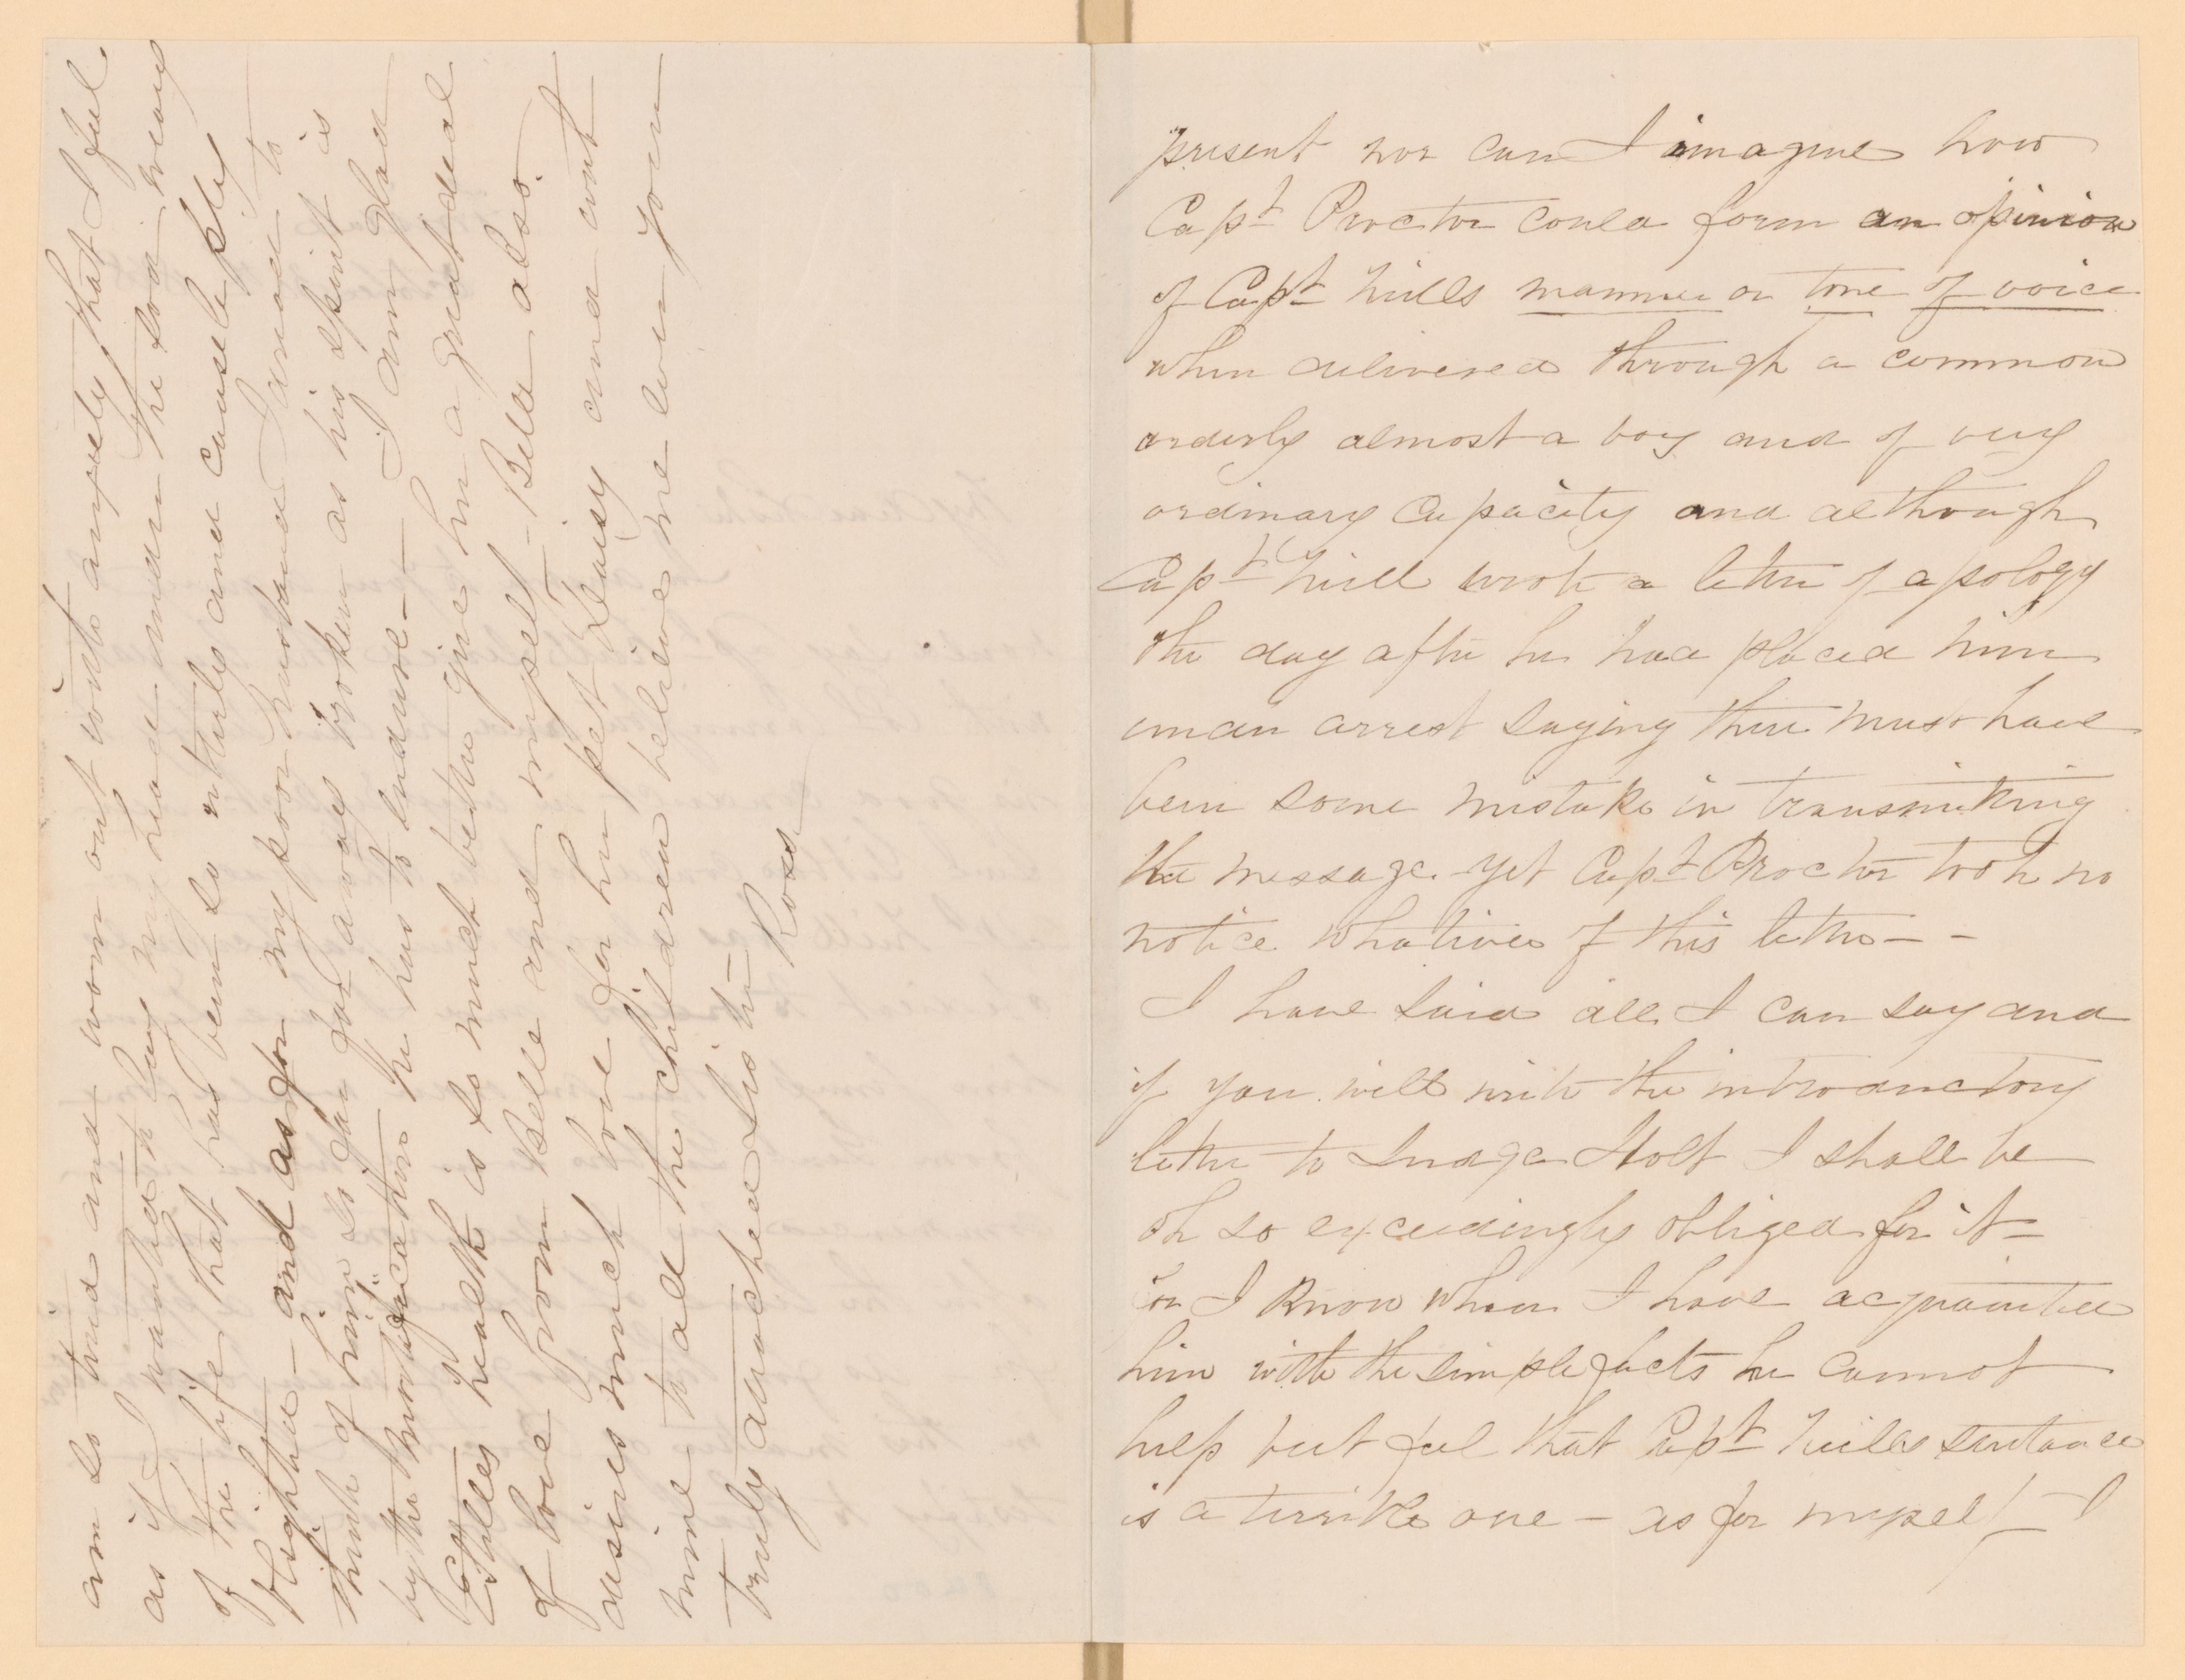 present nor can I imagine how
Capt Proctor could form an opinion
of Capt Hills manner or tone of voice
when delivered through a common
orderly almost a boy and of very
ordinary capacity and although
Capt Hill wrote a letter of apology
the day after he had placed him
under arrest saying there must have
been some mistake in transmitting
the message - yet Capt Proctor took no
notice whatever of this letter - -
I have said all I can say and
if you will write the introductory
letter to Judge Holt I shall be
oh so exceedingly obliged for it -
for I know when I have acquainted
him with the simple facts he cannot
help but feel that Capt Hills sentence
is a terrible one - as for myself - I
am so tired and worn out with anxiety that I feel
as if I wanted to lay my head under the sod - weary
of the life that has been so utterly and causelessly
blighted - and as for my poor husband I dread to
think of him so far away broken as his spirit is
by the mortification he has to endure - I am glad
Estelles health is so much better give her a great deal
of love from Belle and myself - Bella also
desires much love for her pet Daisy and with
mine to all the children believe me ever your
truly attached sister Rose